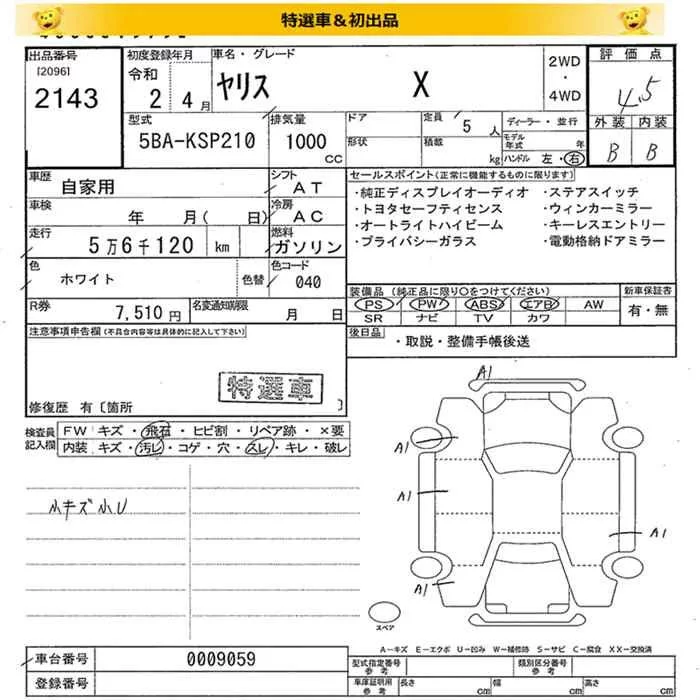 特選車＆初出品
出品番号
[2096]
2143
初度登録年月
令和
2年 4月
車名・グレード
ヤリス X
2WD
・
4WD
評価点
4.5
外装 内装
B B
型式
5BA-KSP210
排気量
1000
cc
ドア
形状
定員 5 人
積載 kg
ディーラー・並行
モデル年式 年
ハンドル 左・右
車歴
自家用
シフト
AT
車検
年 月( 日)
冷房
AC
走行
5万6千120 km
燃料
ガソリン
色
ホワイト
色替
色コード
040
R券
7,510円
名変通知期限
月 日
セールスポイント(正常に機能するものに限ります)
・純正ディスプレイオーディオ ・ステアスイッチ
・トヨタセーフティセンス ・ウィンカーミラー
・オートライトハイビーム ・キーレスエントリー
・プライバシーガラス ・電動格納ドアミラー
装備品(純正品に限り○をつけてください)
PS PW ABS エアB AW
SR ナビ TV カワ
新車保証書
有・無
後日品
・取説・整備手帳後送
注意事項申告欄(不具合内容等は具体的に記入して下さい)
特選車
修復歴 有〔箇所 〕
検査員記入欄
FW キズ・飛石・ヒビ割・リペア跡・×要
内装 キズ・汚レ・コゲ・穴・スレ・キレ・破レ
小キズ小U
A1
A1
A1
A1
A1
スペア
A―キズ E―エクボ U―凹み W―補修跡 S―サビ C―腐食 XX―交換済
車台番号
0009059
登録番号
型式指定番号
参考
類別区分番号
参考
車庫証明用
参考
長さ cm 幅 cm 高さ cm